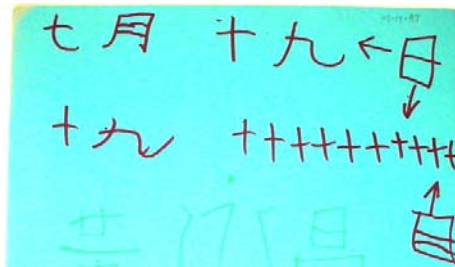 七月 十九 ← 日
↓
十九 十十十十十十十十十十
↑
目